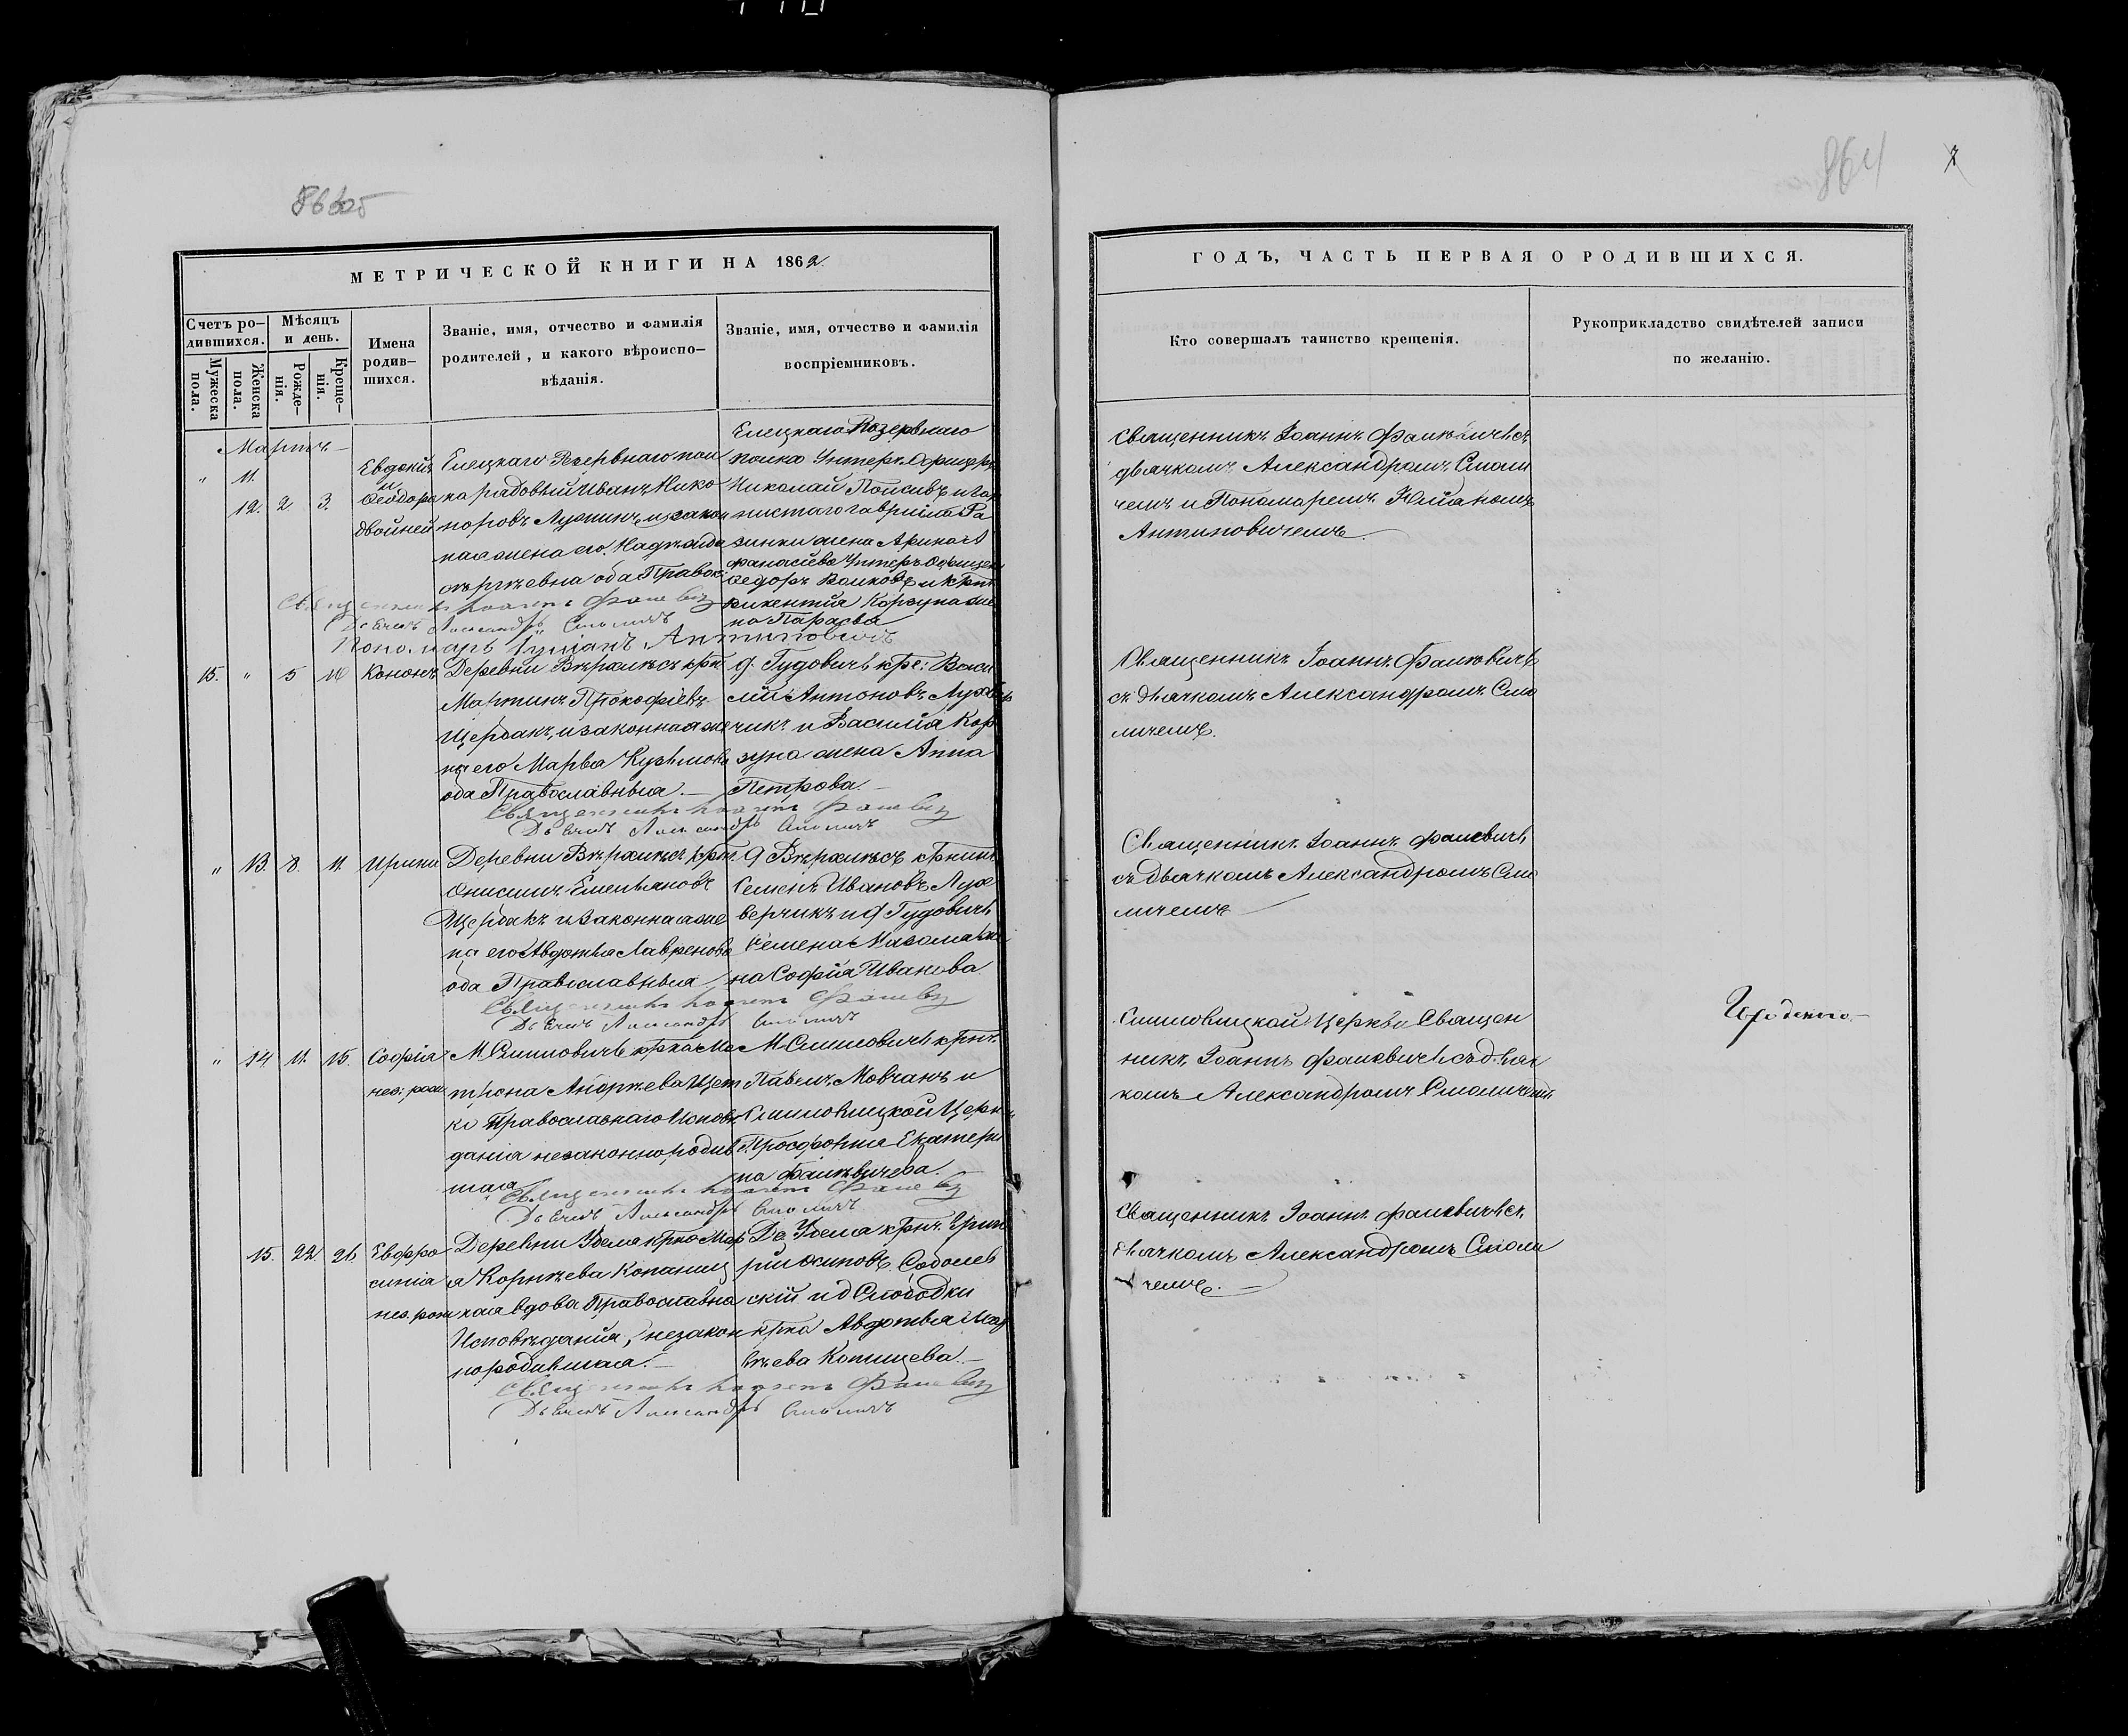 864
МЕТРИЧЕСКОЙ КНИГИ НА 1862.
Счетъ ро-
дившихся.
Мужеска
пола.
Женска
пола.
Мѣсяцъ
и день.
Рожде-
нія.
Креще-
нія.
Имена
родив-
шихся.
Званіе, имя, отчество и фамилія
родителей, и какого вѣроиспо-
вѣданія.
Званіе, имя, отчество и фамилія
воспріемниковъ.
Мартъ
" 11.
12. 2 3.
Евдокія
и
Ѳеодора
двойней
Елецкаго Резервнаго пол
ка рядовый Иванъ Нико
норовъ и закон
ная жена его Надежда
оба Правос:
Елецкаго Резервнаго
полка Унтеръ Офицеръ
Николай
Гавріила
жена Арина А
фанасіева Унтеръ Офицеръ
Ѳедоръ Волковъ и крт
викентія Корзуна же
на Параева
Священникъ Іоаннъ
Дьячекъ Александръ Смоличъ
Пономарь Іуліанъ Антиповичъ
15. " 5 10 Кононъ
Деревни Вержлѣсъ крт
Мартинъ Прокофіевъ
Щербакъ, и законная же
на его Марѳа Кузьмова
оба Православныя.
д. Гудовичъ кре: Васи
лій Антоновъ Лухвер
чикъ и Василія Кор
зуна жена Анна
Петрова.
Священникъ Іоаннъ
Дьячекъ Александръ Смоличъ
" 13. 8. 11. Ирина
Деревни Вержлѣсъ крт
Онисимъ Емельяновъ
Щербакъ и законная же
на его Авдотья Лавренова
оба Православныя
д Вержлѣсъ кркинъ
Семенъ Ивановъ Лух
верчикъ и д Гудовичъ
Семена же
на Софія Иванова
Священникъ Іоаннъ
Дьячекъ Александръ Смоличъ
" 14. 11. 15. Софія
нез: рож
М Слиповичъ крка Ма
трона Андреева
ка Православнаго Исповѣ
данія незаконнородив
шая
М Слиповичъ крнъ
Павелъ Мовчанъ и
Церкви
Просфорня Екатери
на
Священникъ Іоаннъ
Дьячекъ Александръ Смоличъ
15. 22. 26. Евфро
синія
нез. рож
Деревни крка Мар
я Корнеева Копаниц
кая вдова Православна
Исповѣданія, незакон
нородившая.
Де крнъ Григо
рій Осиповъ Соболев
скій и д Слободки
крка Авдотья Мат
вѣева Копицева.
Священникъ Іоаннъ
Дьячекъ Александръ Смоличъ
ГОДЪ, ЧАСТЬ ПЕРВАЯ О РОДИВШИХСЯ.
Кто совершалъ таинство крещенія.
Рукоприкладство свидѣтелей записи
по желанію.
Священникъ Іоаннъ Фалкевичъ съ
дьячкомъ Александромъ Смоли
чемъ и Пономаремъ Юліаномъ
Антиповичемъ.
Священникъ Іоаннъ Фалкевичъ
съ дьячкомъ Александромъ Смо
личемъ.
Священникъ Іоаннъ Фалкевичъ
съ дьячкомъ Александромъ Смо
личемъ
Церкви Священ
никъ Іоаннъ Фалкевичъ съ дьяч
комъ Александромъ Смоличемъ.
Священникъ Іоаннъ Фалкевичъ съ
дьячкомъ Александромъ Смоли
чемъ.